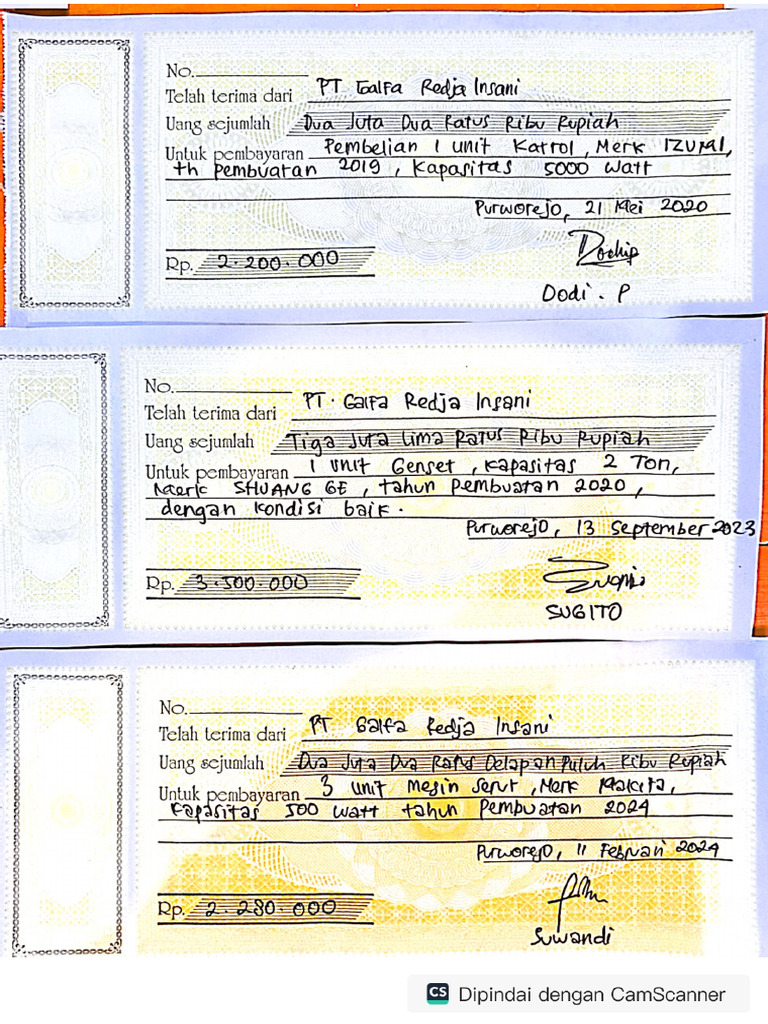 No.
Telah terima dari PT Galfa Redja Insani
Uang sejumlah Dua Juta Dua Ratus Ribu Rupiah
Untuk pembayaran Pembelian 1 Unit Katrol, Merk IZUMI,
th Pembuatan 2019, Kapasitas 5000 Watt
Purworejo, 21 Mei 2020
Rp. 2.200.000
Dodi. P
No.
Telah terima dari PT. Galfa Redja Insani
Uang sejumlah Tiga Juta Lima Ratus Ribu Rupiah
Untuk pembayaran 1 Unit Genset, Kapasitas 2 Ton,
Merk SHUANG GE, tahun Pembuatan 2020,
dengan kondisi baik.
Purworejo, 13 September 2023
Rp. 3.500.000
SUGITO
No.
Telah terima dari PT Galfa Redja Insani
Uang sejumlah Dua Juta Dua Ratus Delapan Puluh Ribu Rupiah
Untuk pembayaran 3 Unit Mesin Serut, Merk Makita,
Kapasitas 500 Watt tahun Pembuatan 2024
Purworejo, 11 Februari 2024
Rp. 2.280.000
Suwandi
CS Dipindai dengan CamScanner